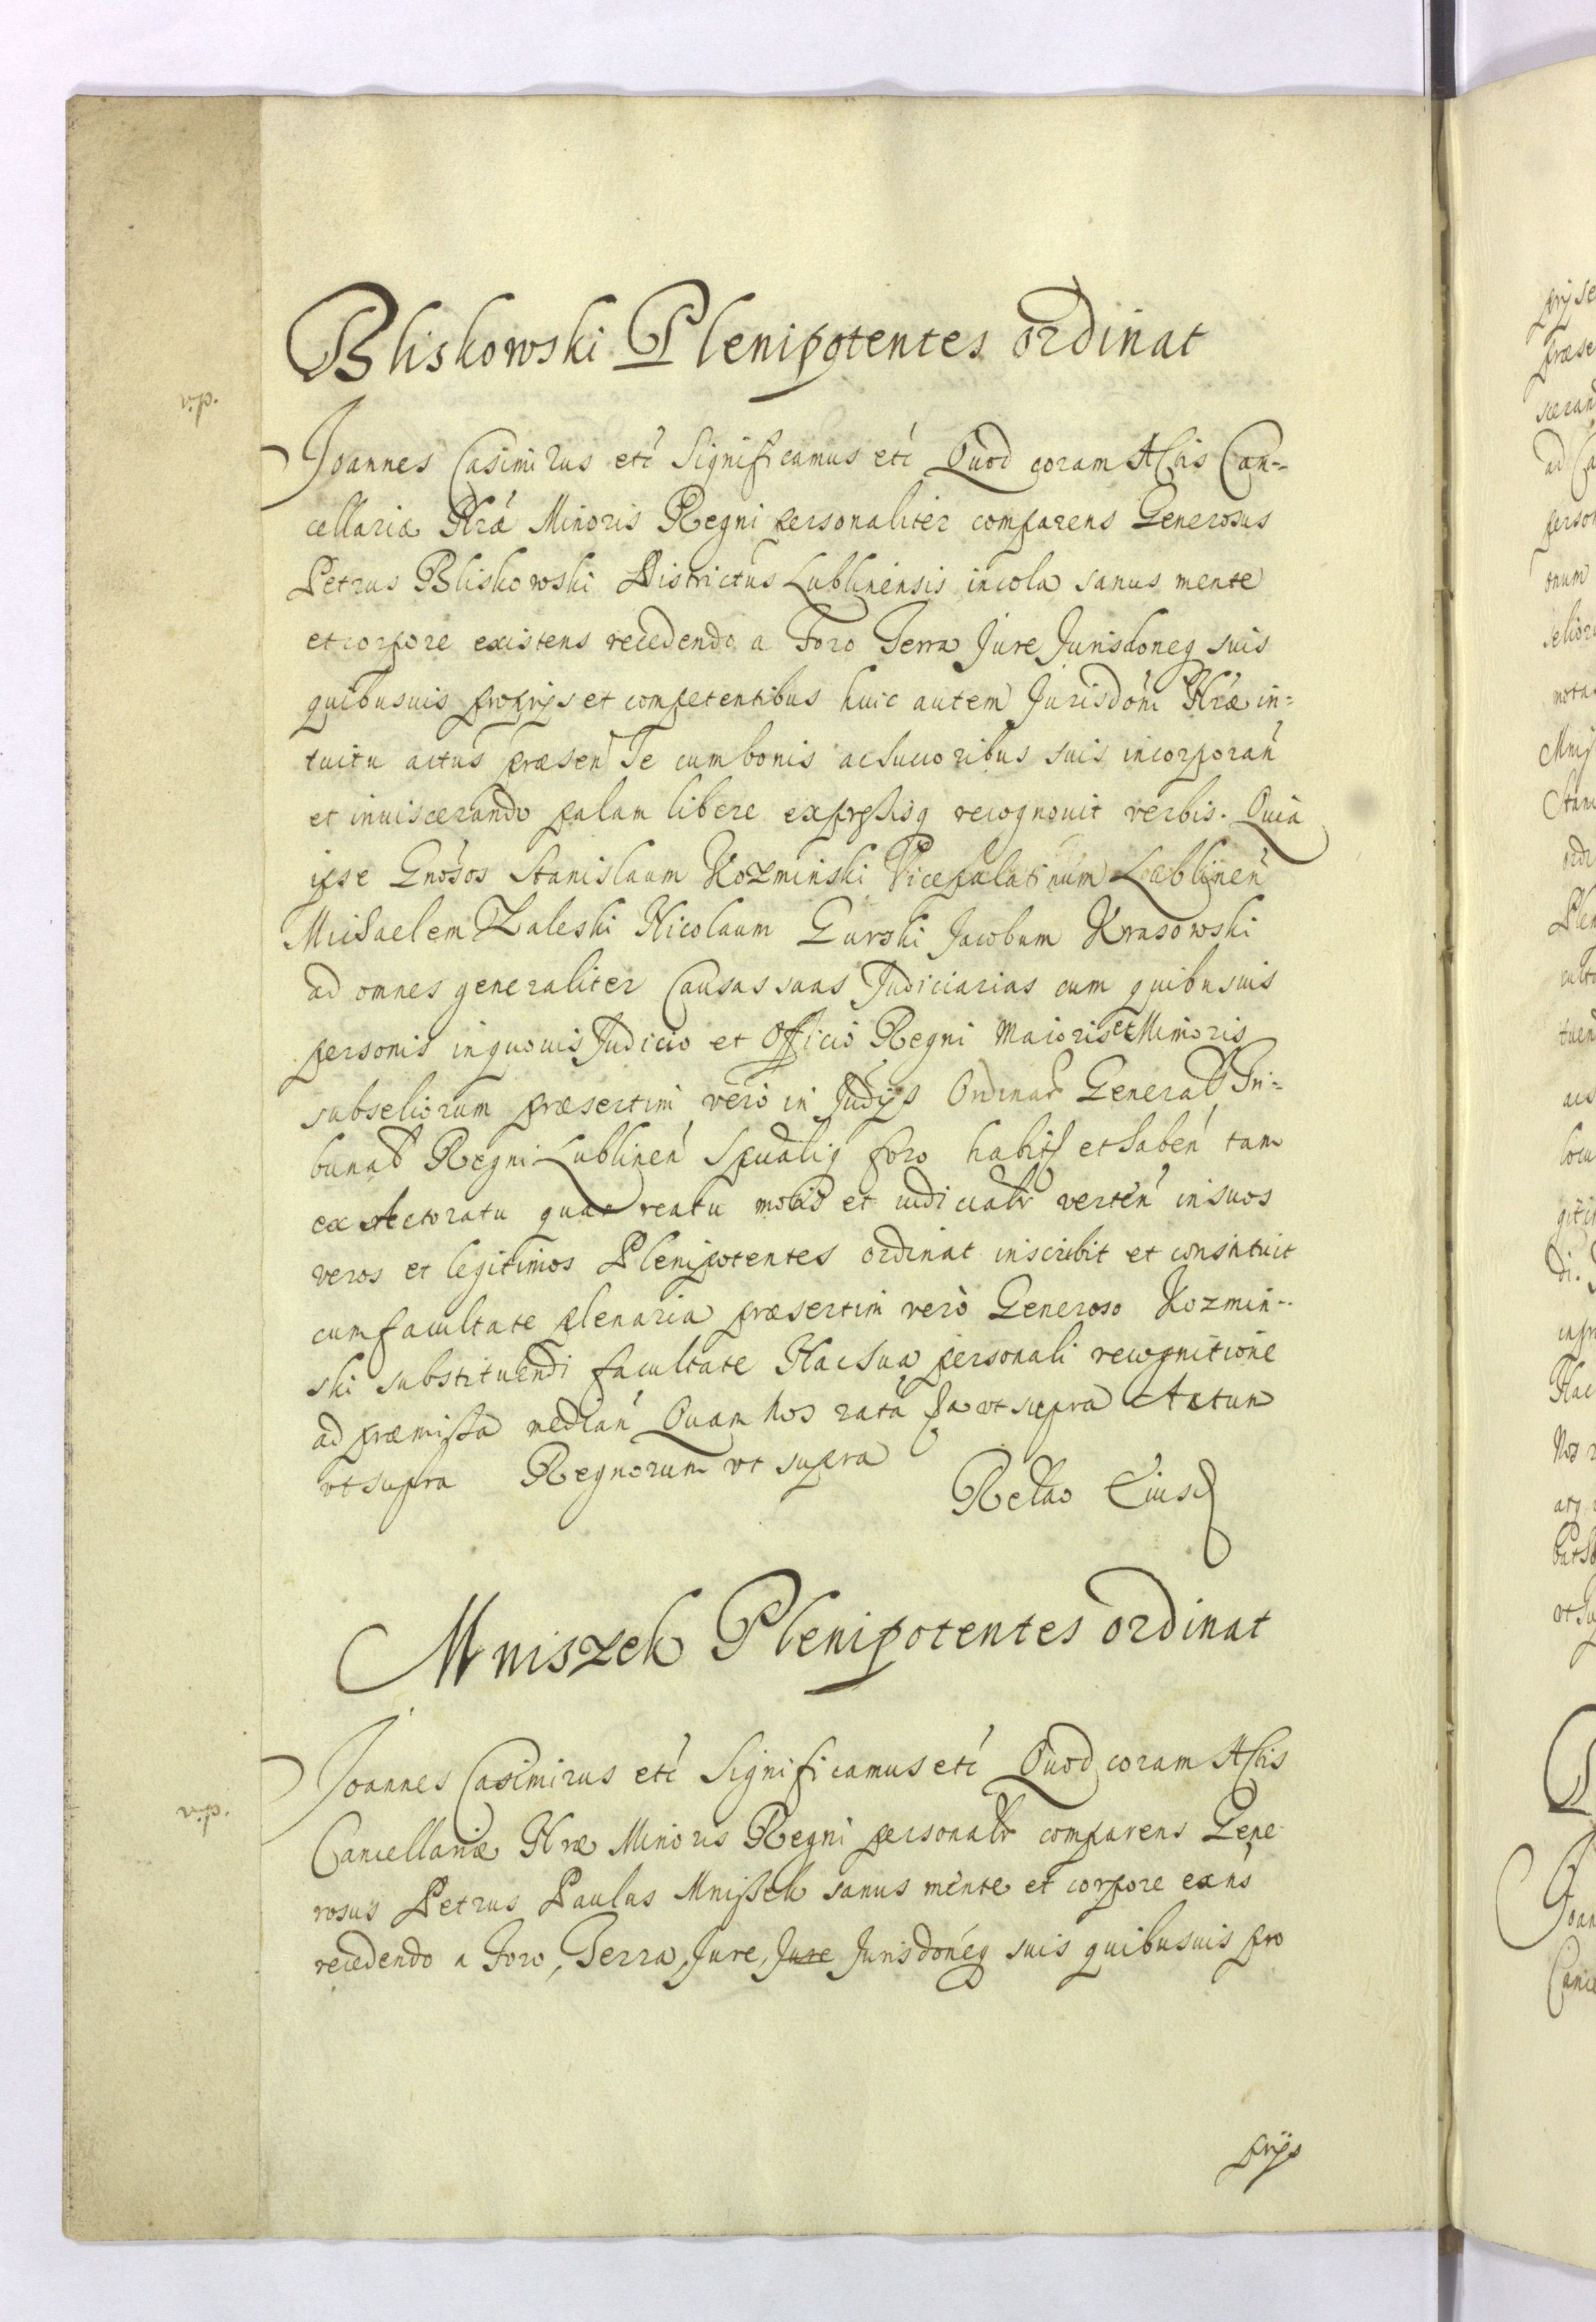 Bliskowski Plenipotentes ordinat
Joannes Casimirus etc Significamus etc Quod coram Actis Can=
cellariæ Nræ Minoris Regni personaliter comparens Generosus
Petrus Bliskowski Districtus Lublinensis incola sanus mente
et corpore existens recedendo a Foro Terra Jure Jurisdoneq suis
quibusuis proprijs et competentibus huic autem Jurisdoni Nræ in=
tuitu actus præsen Se cum bonis ac succoribus suis incorporan
et inuiscerando palam libere expressisq recognouit verbis. Quia
ipse Gnosos Stanislaum Kozminski Vicepalatinum Lublinen
Michaelem Zaleski Nicolaum Gurski Jacobum Krasowski
ad omnes generaliter Causas suas Judiciarias cum quibusuis
personis in quouis Judicio et Officio Regni Maioris et Minoris
subseliorum præsertim vero in Judijs Ordinar General Tri=
bunal Regni Lublinen Spualiq foro habit et haben tam
ex Actoratu quam reatu motis et iudicialr verten in suos
veros et legitimos Plenipotentes ordinat inscribit et constituit
cum facultate plenaria præsertim verò Generoso Kozmin=
ski substituendi facultate Hac Sua personali recognitione
ad præmissa median Quam Nos rata ut supra Actum
ut supra Regnorum ut supra
Rellao Eiusd
Mniszek Plenipotentes ordinat
Joannes Casimirus etc Significamus etc Quod coram Actis
Cancellariæ Nræ Minoris Regni personalr comparens Gene
rosus Petrus Paulus Mniszek sanus mente et corpore exns
recedendo a Foro, Terra, Jure, Jure Jurisdoneq suis quibusuis pro
prijs